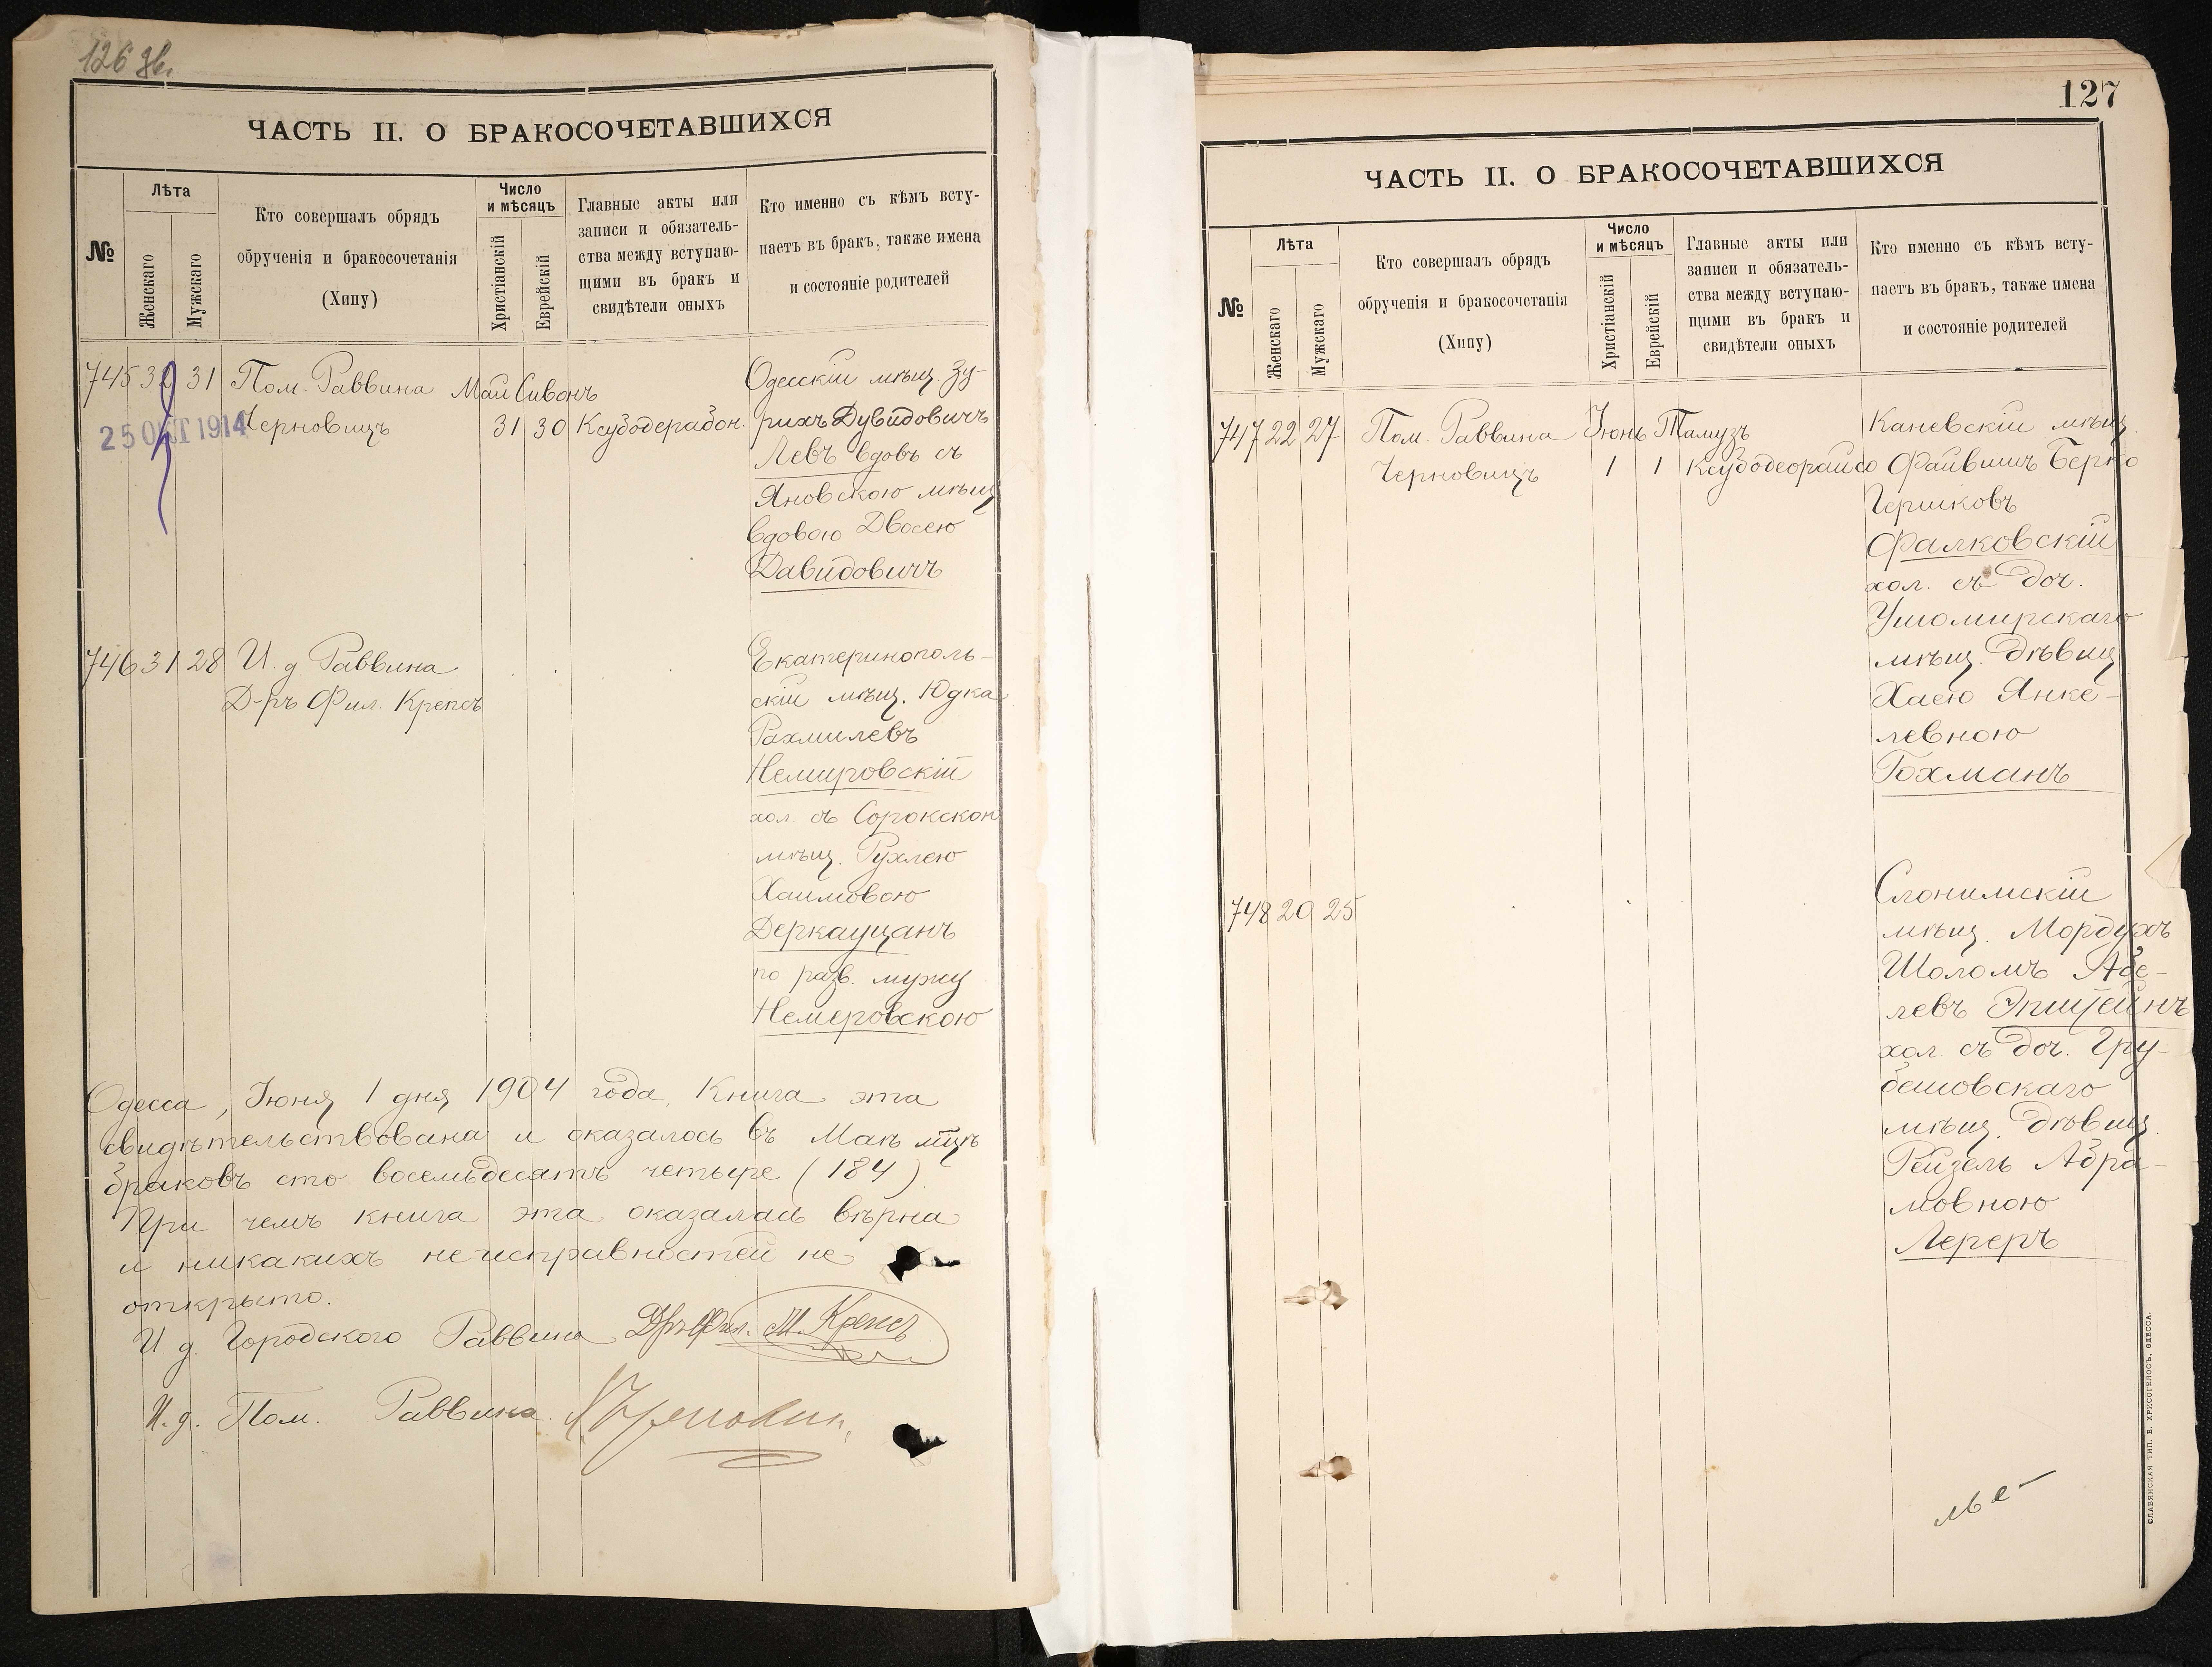 126 зв.
ЧАСТЬ II. О БРАКОСОЧЕТАВШИХСЯ
№
Лѣта
Женскаго
Мужскаго
Кто совершалъ обрядъ
обрученія и бракосочетанія
(Хипу)
Число
и мѣсяцъ
Христіанскій
Еврейскій
Главные акты или
записи и обязатель-
ства между вступаю-
щими въ бракъ и
свидѣтели оныхъ
Кто именно съ кѣмъ всту-
паетъ въ бракъ, также имена
и состояніе родителей
745 32 31 Пом. Раввина Май Сивонъ Одесскій мѣщ. Зу-
25 ОКТ 1914
Черновицъ 31 30 Ксубодерабон. рихъ Дувидовичъ
Левъ вдовъ съ
Яновскою мѣщ
вдовою Двосею
Давидовичъ
746 31 28 И. д Раввина Екатеринополь-
Д-ръ Фил. Крепсъ скій мѣщ. Юдка
Рахмилевъ
Немировскій
хол. съ Сорокскою
мѣщ. Рухлею
Хаимовою
Деркауцанъ
по разв. мужу
Немеровскою
Одесса, Іюня 1 дня 1904 года, Книга эта
свидѣтельствована и оказалось въ Маѣ мцѣ
браковъ сто восемьдесятъ четыре (184)
При чемъ книга эта оказалась вѣрна
и никакихъ неисправностей не
открыто.
И д. Городского Раввина Д-ръ Фил. М. Крепсъ
И. д. Пом. Раввина
127
ЧАСТЬ II. О БРАКОСОЧЕТАВШИХСЯ
№
Лѣта
Женскаго
Мужскаго
Кто совершалъ обрядъ
обрученія и бракосочетанія
(Хипу)
Число
и мѣсяцъ
Христіанскій
Еврейскій
Главные акты или
записи и обязатель-
ства между вступаю-
щими въ бракъ и
свидѣтели оныхъ
Кто именно съ кѣмъ всту-
паетъ въ бракъ, также имена
и состояніе родителей
747 22 27 Пом. Раввина Іюнь Тамузъ Каневскій мѣщ.
Черновицъ 1 1 Ксубодеорайсо Файвишъ Берко
Гершковъ
Фалковскій
хол. съ доч.
Ушомирскаго
мѣщ. дѣвиц
Хаею Янке-
левною
Гохманъ
748 20 25 Слонимскій
мѣщ. Мордухъ
Шоломъ Абе-
левъ Эпштейнъ
хол. съ доч. Гру-
бешовскаго
мѣщ. дѣвиц.
Рейзель Абра-
мовною
Лереръ
СЛАВЯНСКАЯ ТИП. Е. ХРИСОГЕЛОСЪ, ОДЕССА.